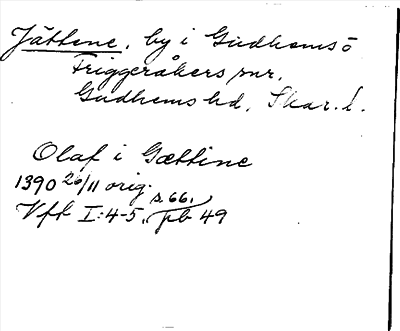 Jättene, by i Gudhems ö
Friggeråkers snr,
Gudhems hd, Skar. l.
Olaf i Gættine
1390 26/11 orig.
s. 66,
Vft I:4-5, pb 49